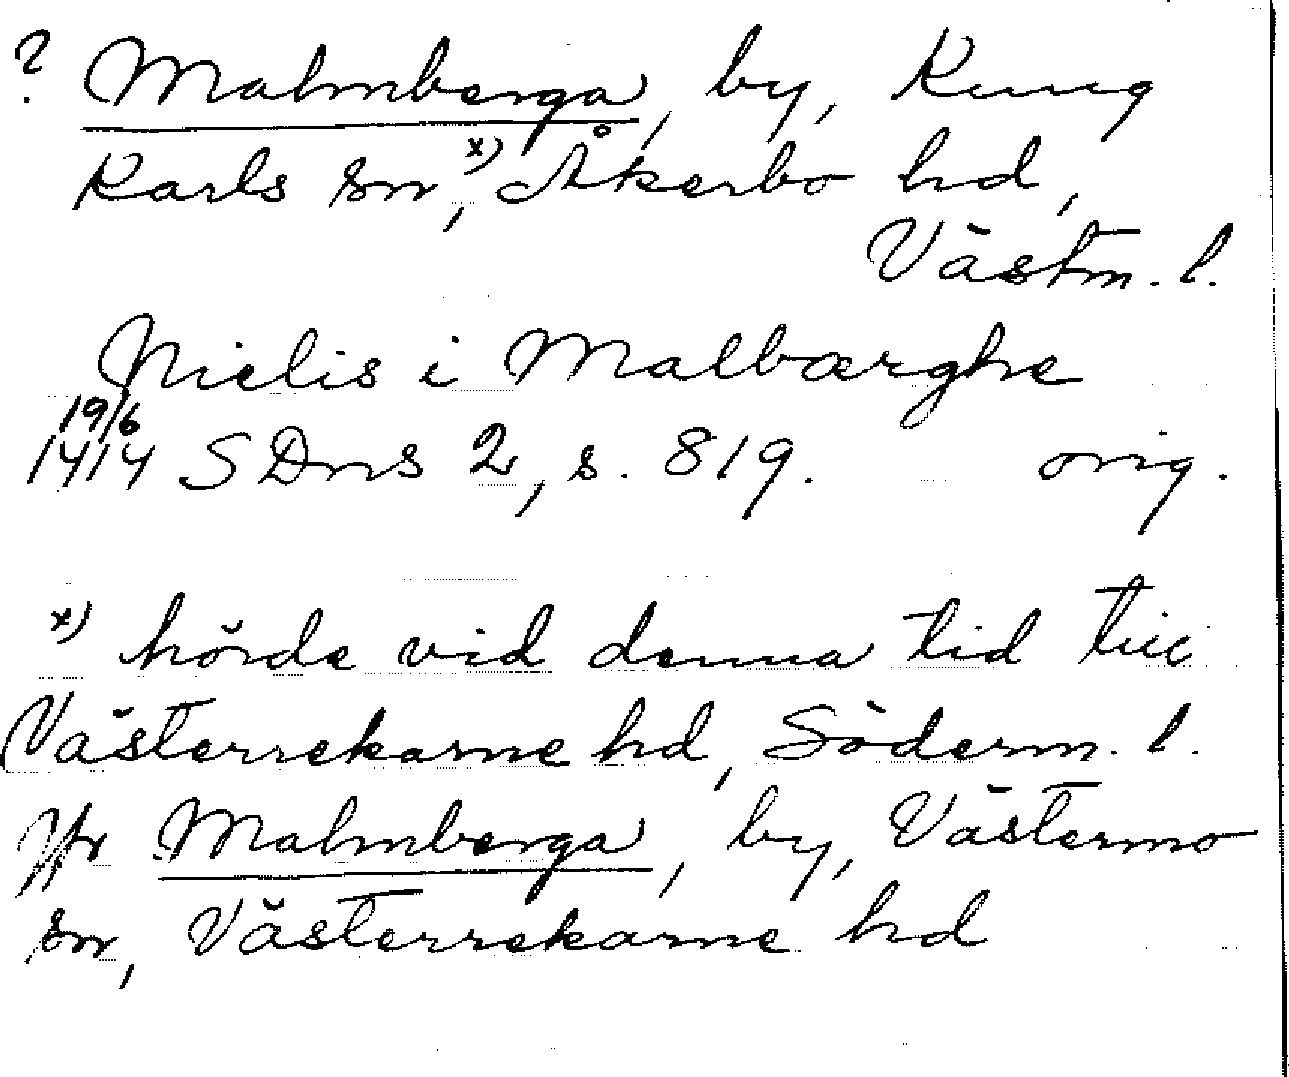 ? Malmberga, by, Kung
Karls sn,x) Åkerbo hd,
Västm. l.
Nielis i Malbærghe
19/6
1414 SDns 2, s. 819. orig.
x) hörde vid denna tid till
Västerrekarne hd, Söderm. l.
Jfr Malmberga, by, Västermo
sn, Västerrekarne hd